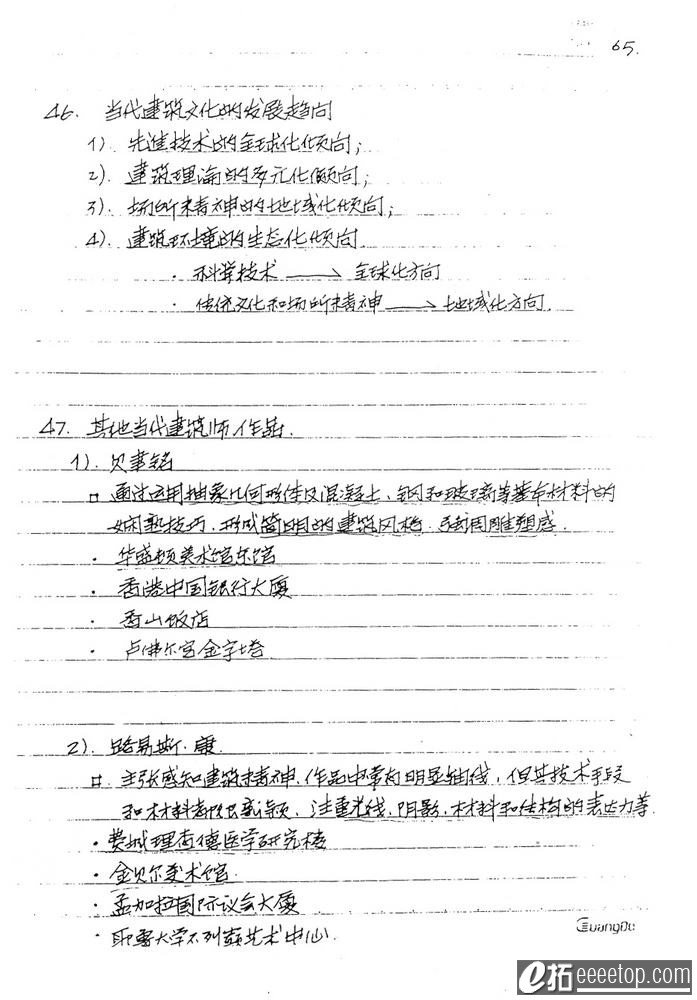 65.
46. 当代建筑文化的发展趋向
1). 先进技术的全球化倾向;
2). 建筑理论的多元化倾向;
3). 场所精神的地域化倾向;
4). 建筑环境的生态化倾向
· 科学技术 → 全球化方向
· 传统文化和场所精神 → 地域化方向.
47. 其他当代建筑师作品.
1). 贝聿铭
□ 通过运用抽象几何形体及混凝土、钢和玻璃等基本材料的
娴熟技巧,形成简明的建筑风格. 强调雕塑感.
· 华盛顿美术馆东馆
· 香港中国银行大厦
· 香山饭店
· 卢佛尔宫金字塔
2). 路易斯·康
□ 主张感知建筑精神、作品中常有明显轴线, 但其技术手段
和材料都很新颖. 注重光线、阴影、材料和结构的表达力等
· 费城理查德医学研究楼
· 金贝尔美术馆.
· 孟加拉国际议会大厦
· 耶鲁大学不列颠艺术中心.
GuangBo
e拓 eeeetop.com